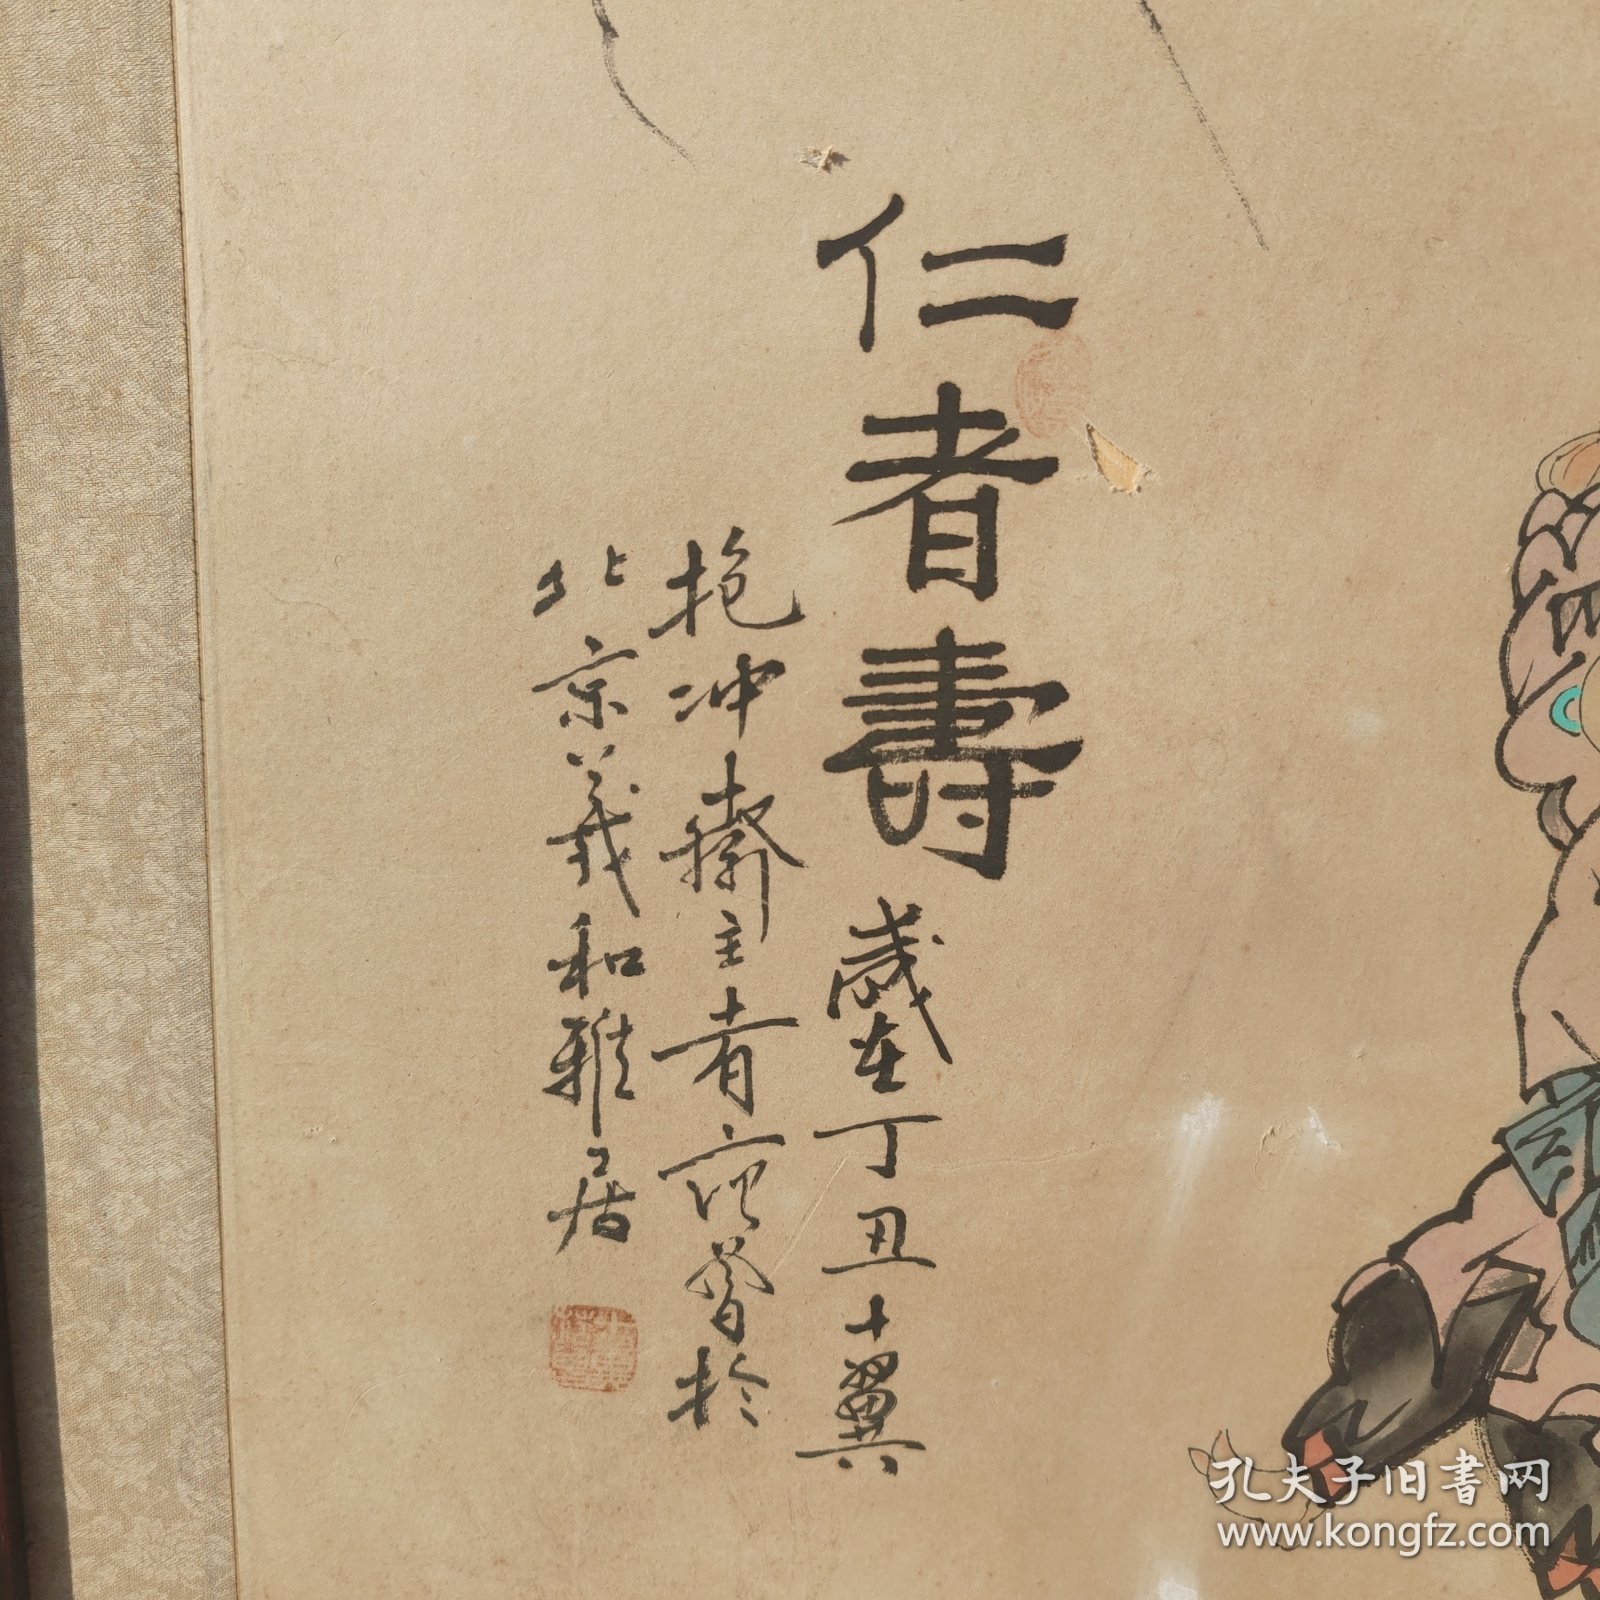 仁者壽
歲在丁丑十翼
抱冲齋主者范曾於
北京義和雅居
孔夫子旧书网
www.kongfz.com